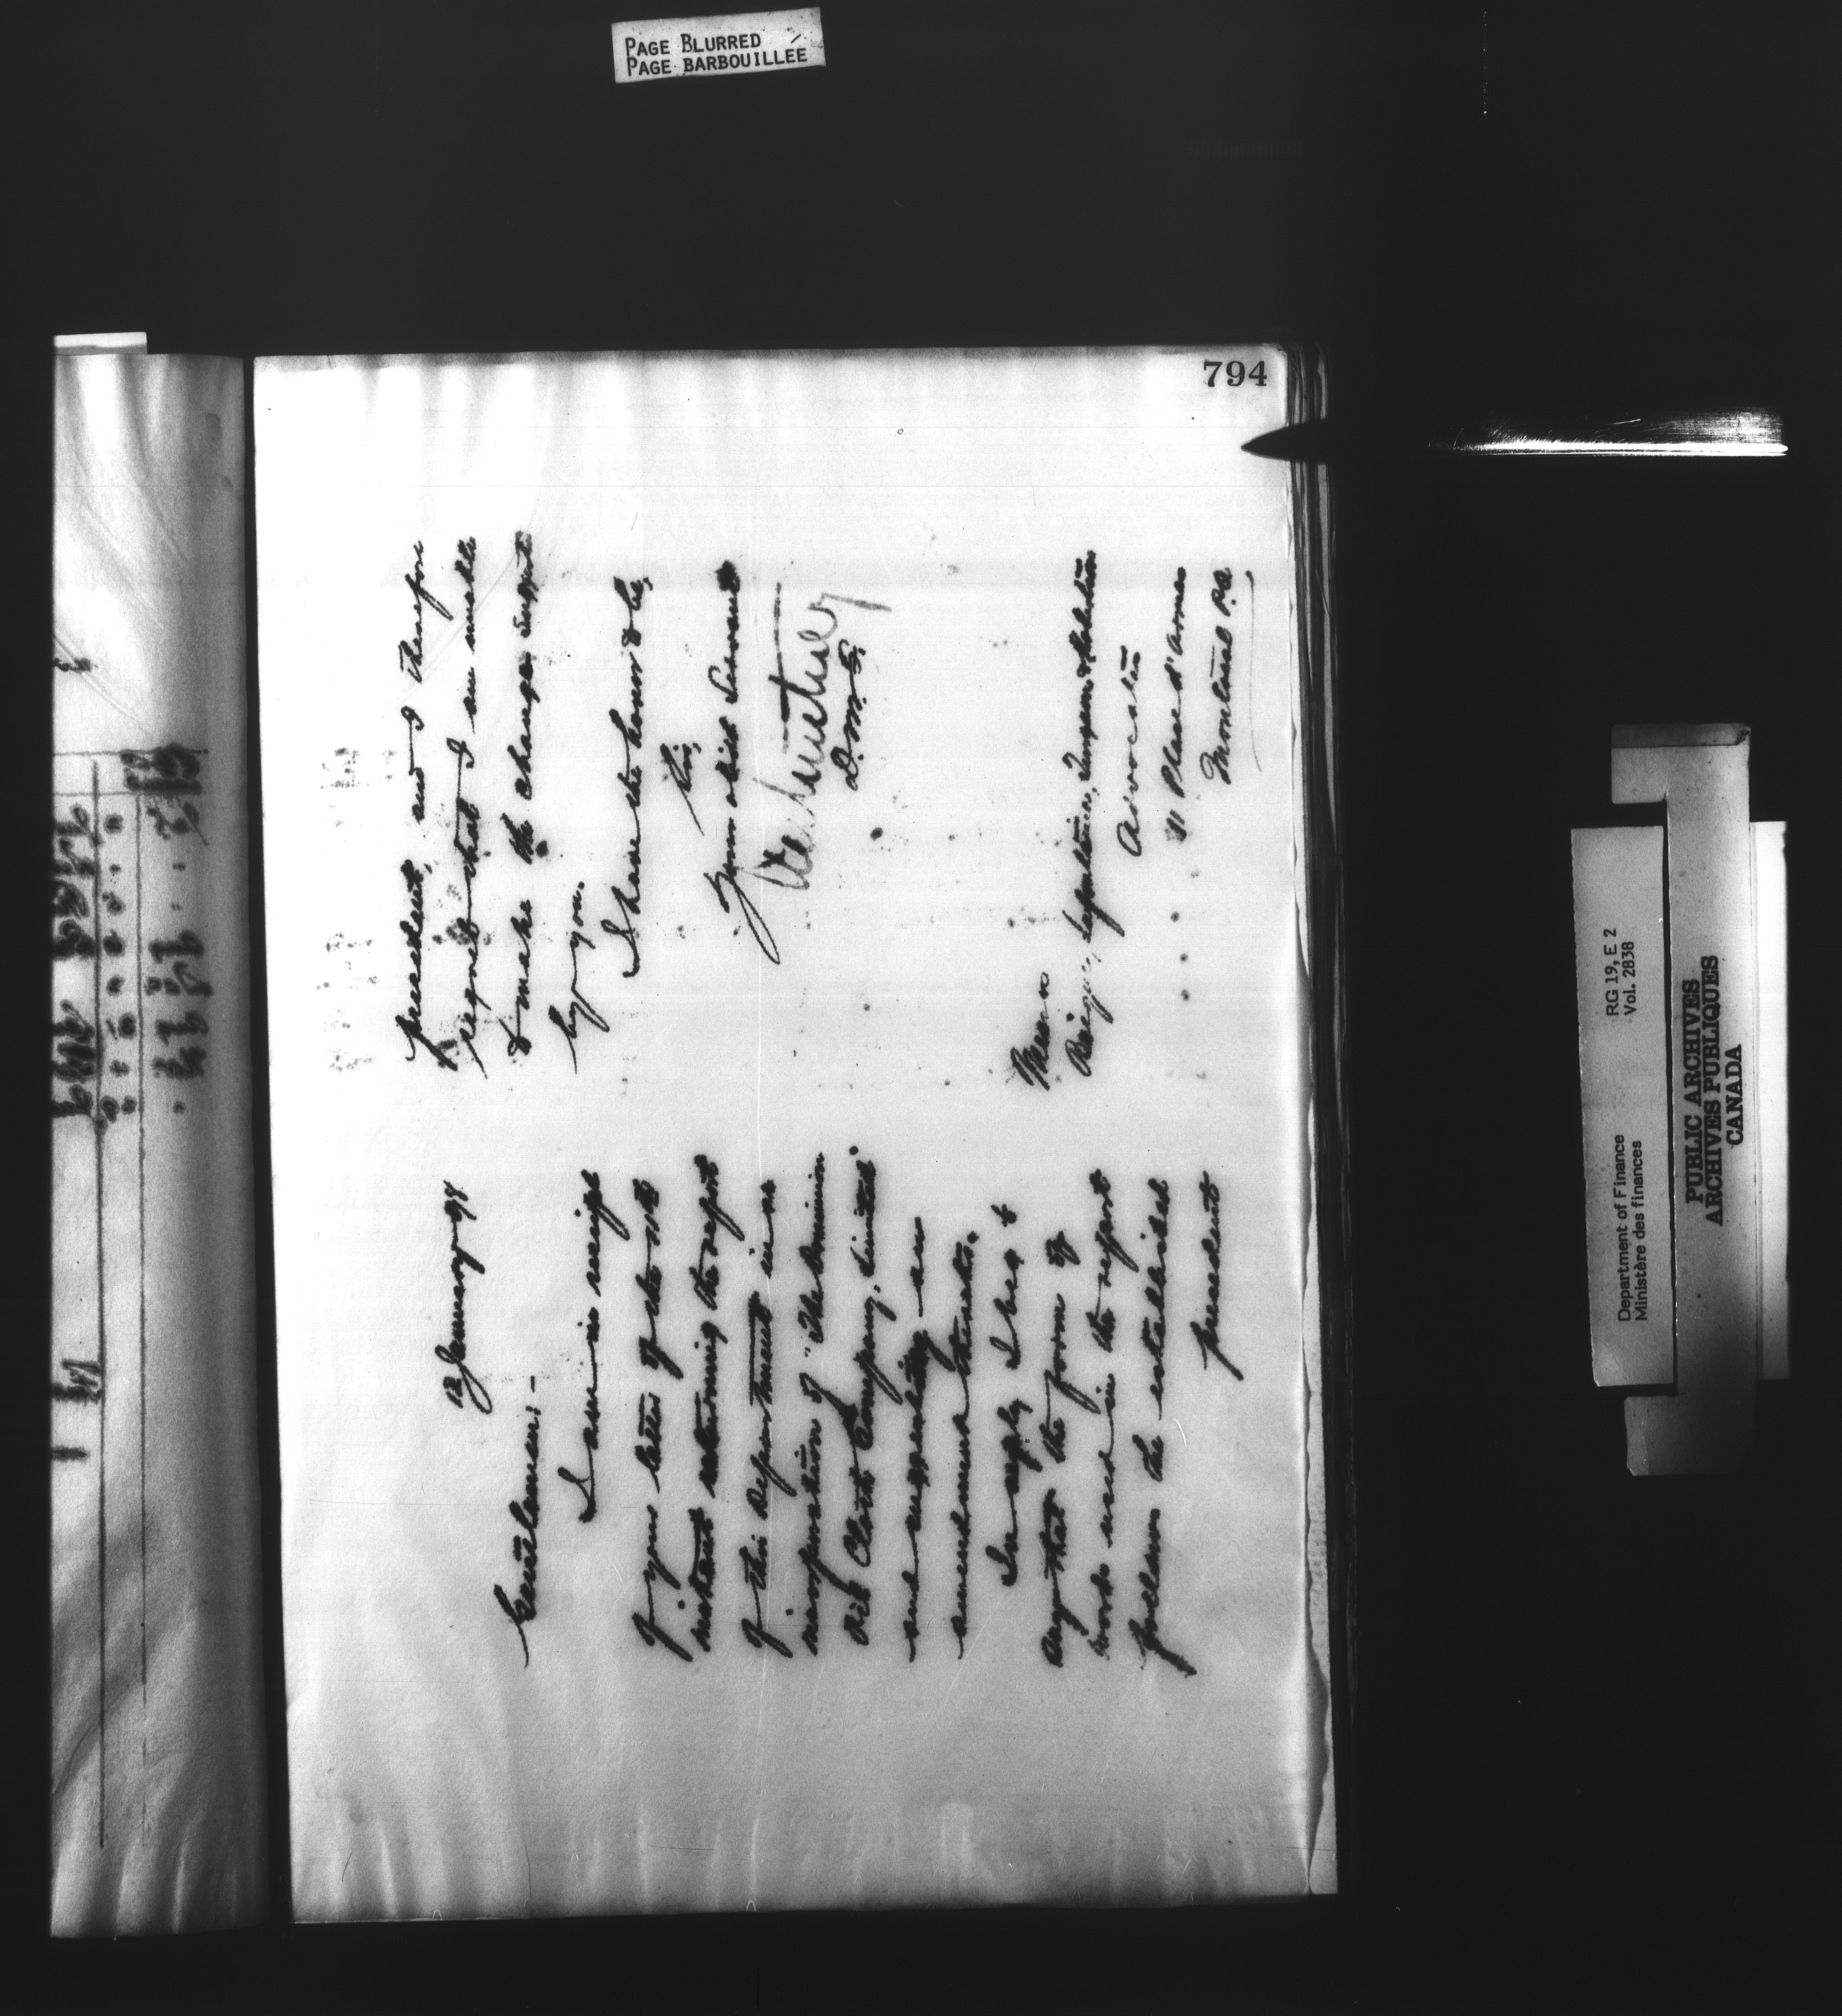 PAGE BLURRED
PAGE BARBOUILLÉE
794
12 January 98
Gentlemen:-
I am in receipt
of your letter of the
instant returning the report
of this Department in re
incorporation of "The Dominion
Oil Cloth Company, Limited"
and suggesting an
amendment thereto.
In reply I beg to
say that the form of
words used in the report
follows the established
precedent
precedent, and I therefore
regret that I am unable
to make the changes suggested
by you.
I have the honor to be,
Your obdt Servant
D.M.F.
Messrs
Advocates
11 Place d'Armes
Montreal P.Q.
Department of Finance
Ministère des finances
RG 19, E 2
Vol. 2838
PUBLIC ARCHIVES
ARCHIVES PUBLIQUES
CANADA